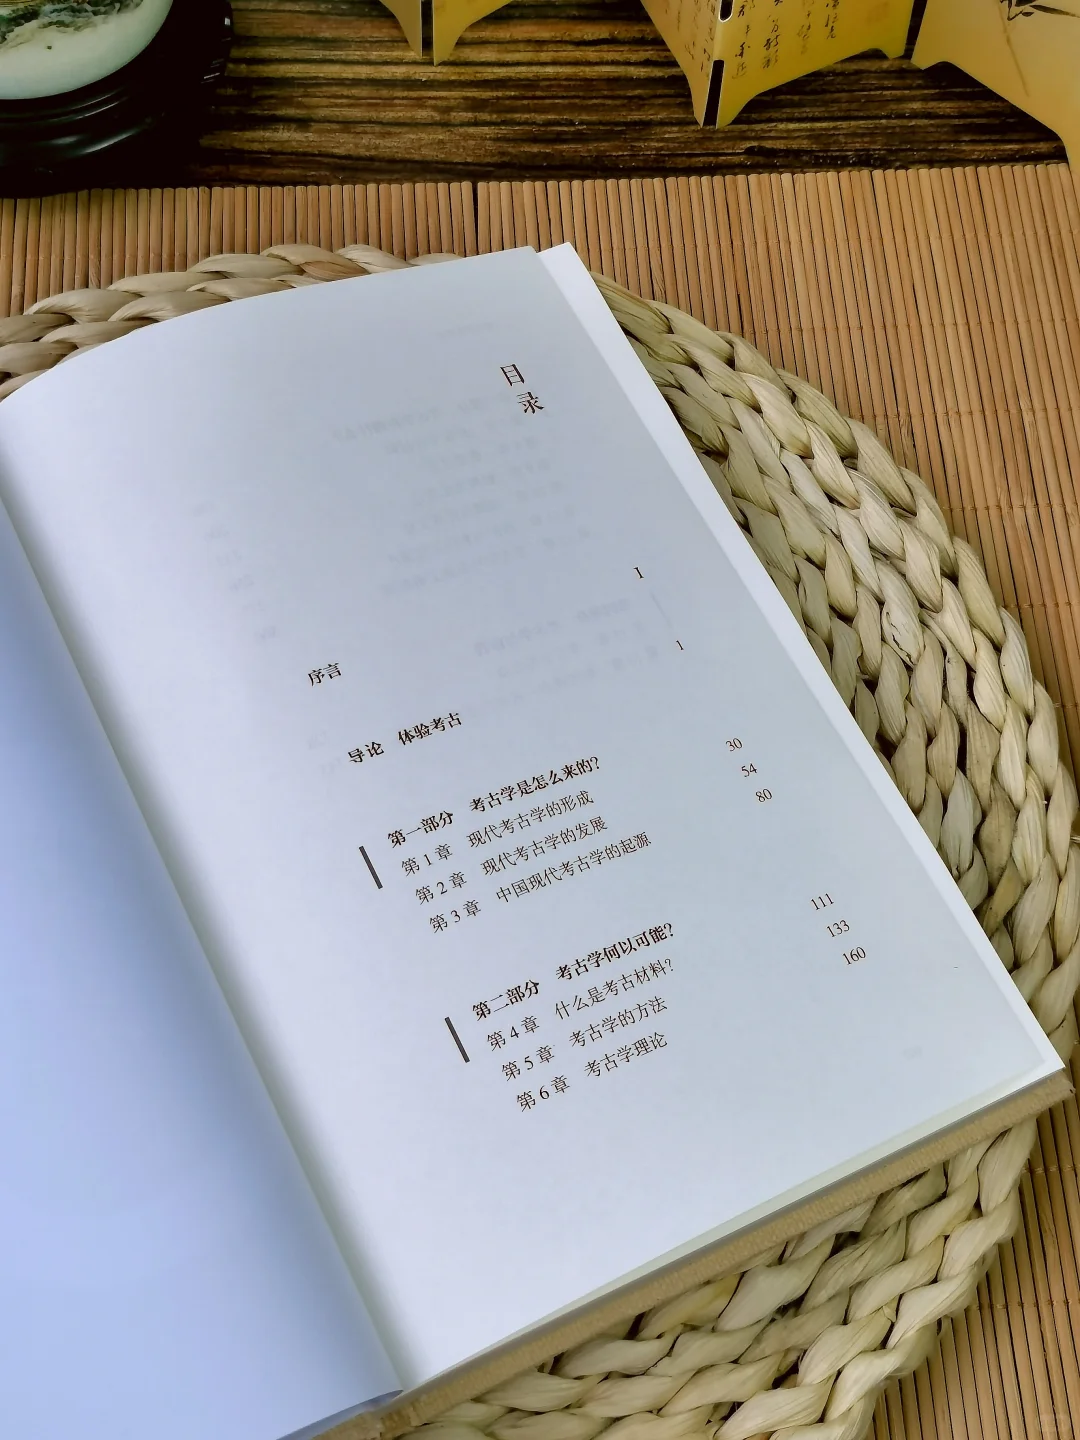 目
录
序言 I
导论 体验考古 1
第一部分 考古学是怎么来的？
第1章 现代考古学的形成 30
第2章 现代考古学的发展 54
第3章 中国现代考古学的起源 80
第二部分 考古学何以可能？
第4章 什么是考古材料？ 111
第5章 考古学的方法 133
第6章 考古学理论 160